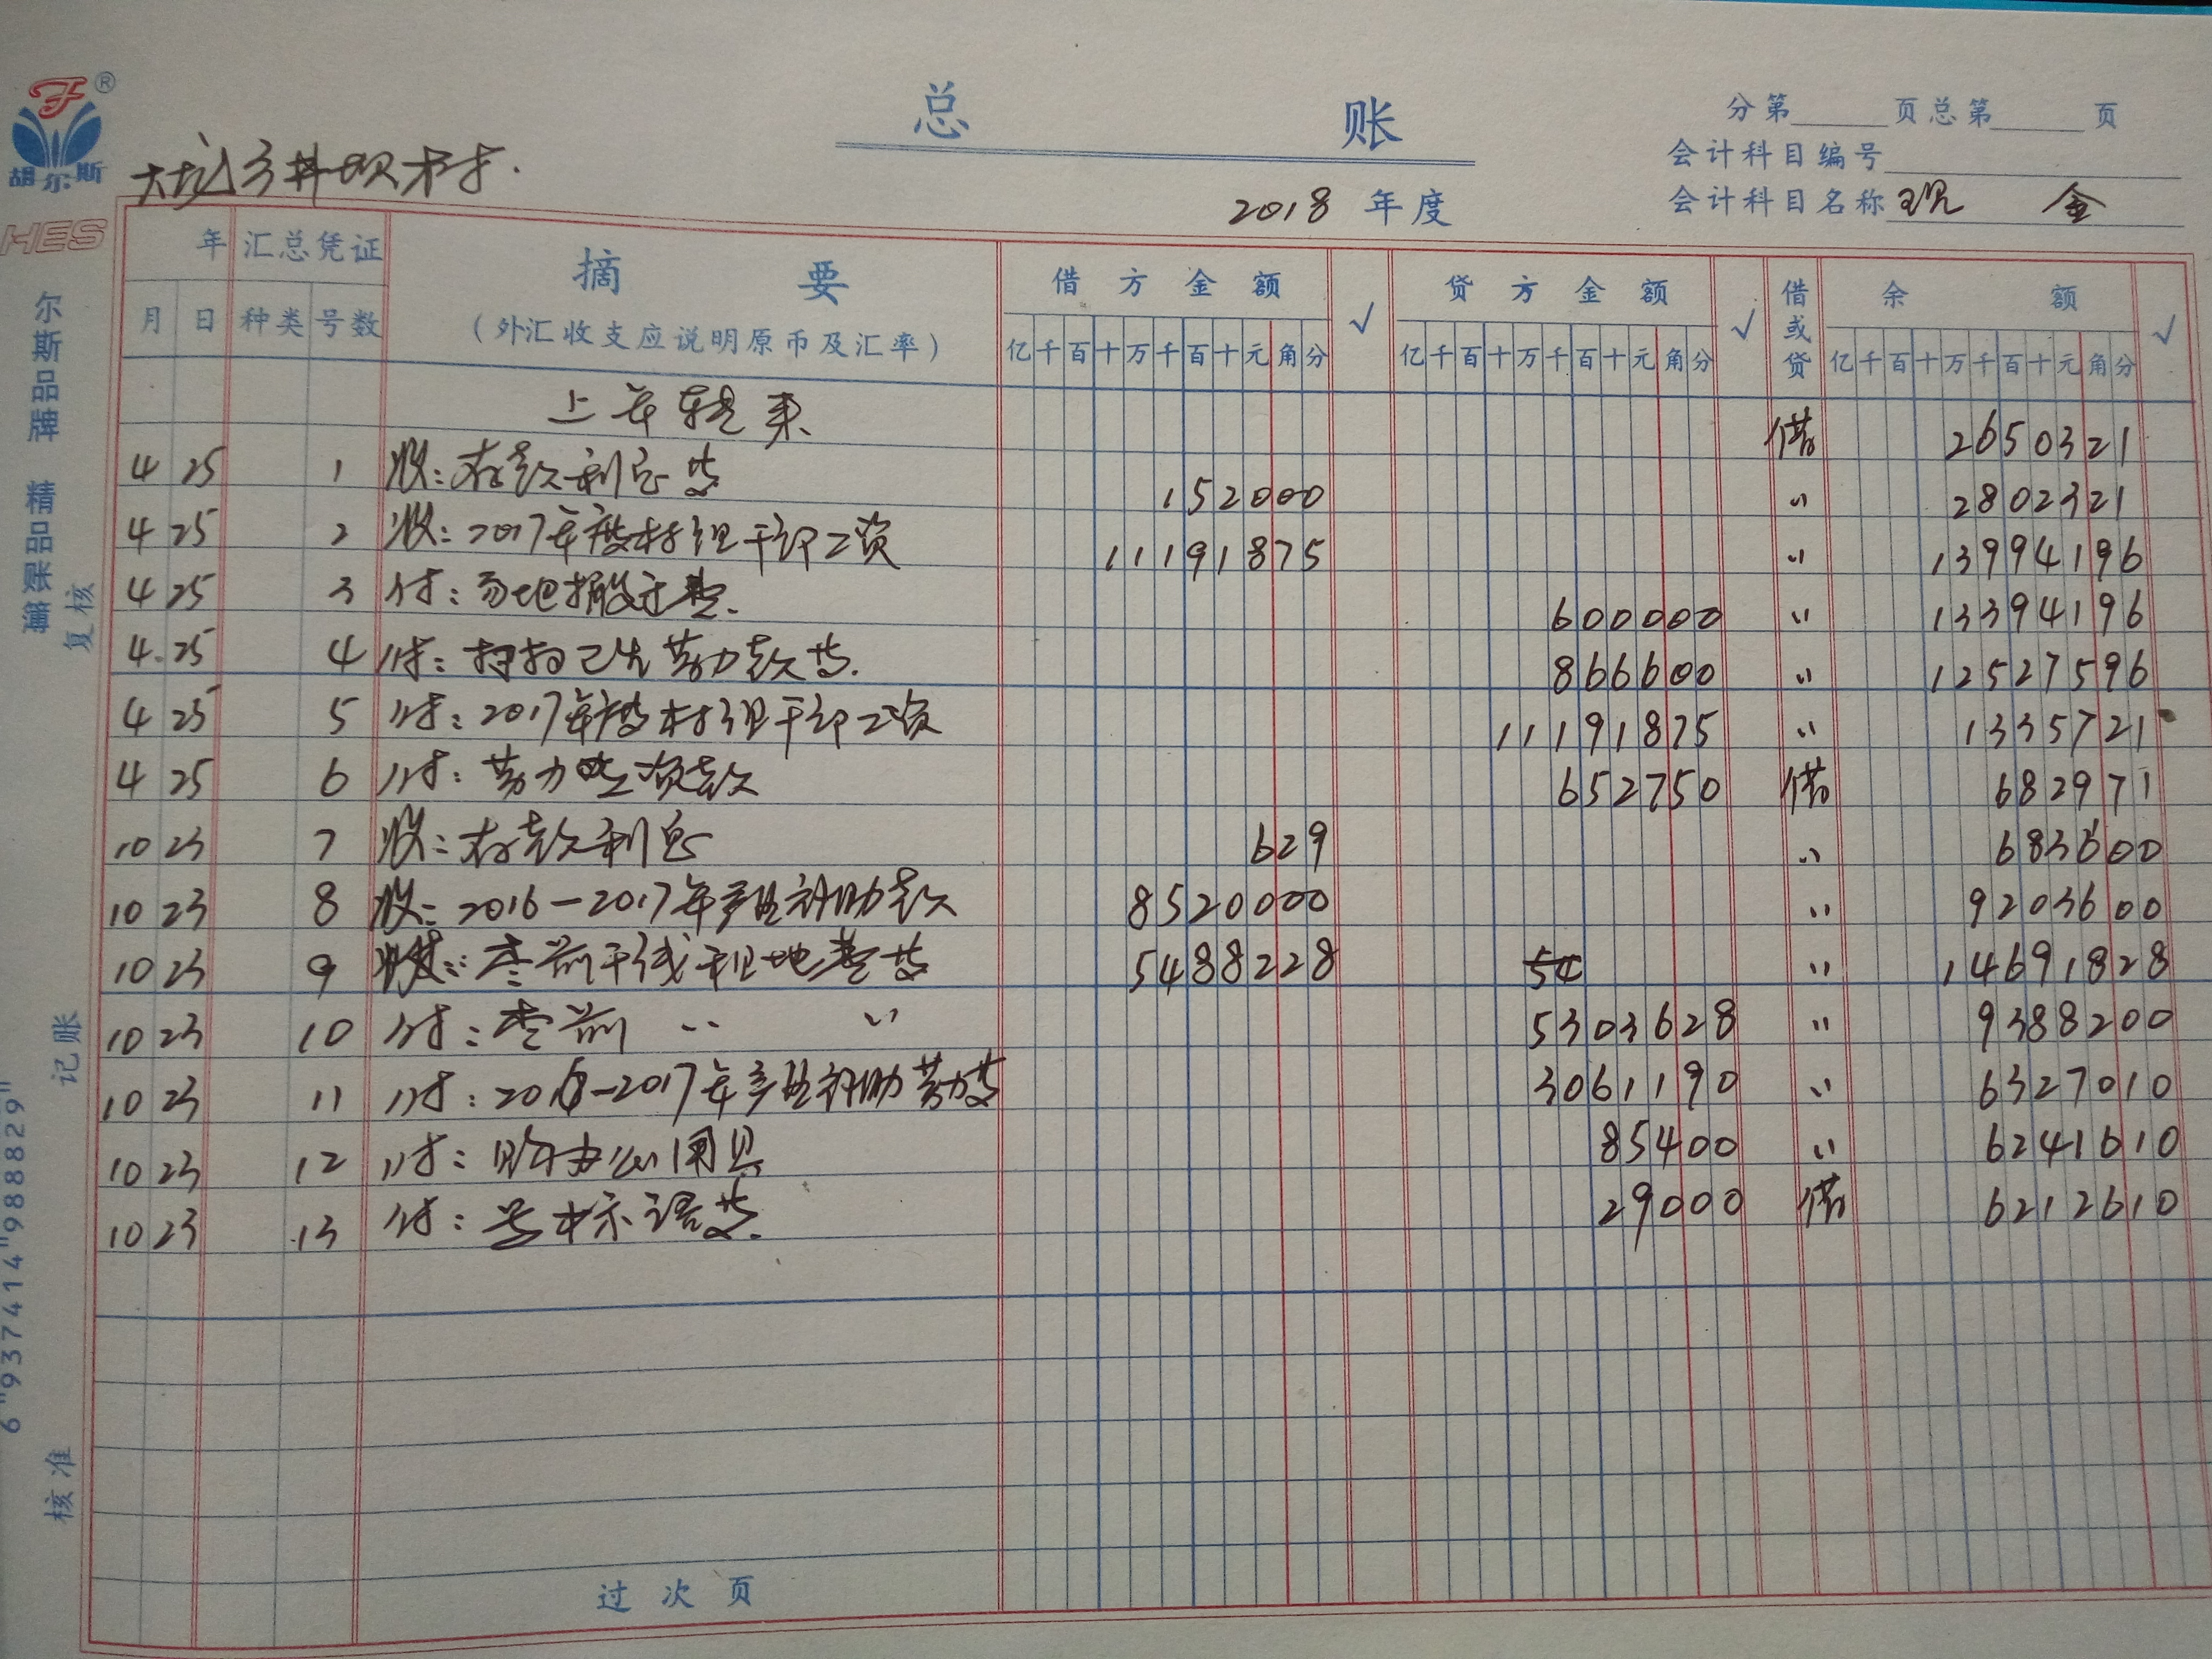 胡尔斯®
HES
总 账
分第 页总第 页
会计科目编号
大坑乡井坝村.
2018 年度
会计科目名称 现 金
年 汇总凭证 摘 要 借方金额 √ 贷方金额 √ 借或贷 余 额 √
月 日 种类 号数 (外汇收支应说明原币及汇率) 亿千百十万千百十元角分 亿千百十万千百十元角分 亿千百十万千百十元角分
上年转来 借 2650321
4 25 1 收:存款利息等 152000 〃 2802321
4 25 2 收:2017年度村组干部工资 11191875 〃 13994196
4 25 3 付:易地搬迁 600000 〃 13394196
4.25 4 付:打扫卫生劳力款等. 866600 〃 12527596
4 25 5 付:2017年度村组干部工资 11191875 〃 1335721
4 25 6 付:劳力工资款 652750 借 682971
10 23 7 收:存款利息 629 〃 683600
10 23 8 收:2016-2017年产业补助款 8520000 〃 9203600
10 23 9 收: 5488228 54 〃 14691828
10 23 10 付: 〃 〃 5303628 〃 9388200
10 23 11 付:2016-2017年产业补助劳力等 3061190 〃 6327010
10 23 12 付:购办公用具 85400 〃 6241610
10 23 13 付:写标语等. 29000 借 6212610
过次页
尔斯品牌 精品账簿
复核
记账
核准
6"937414"988829"